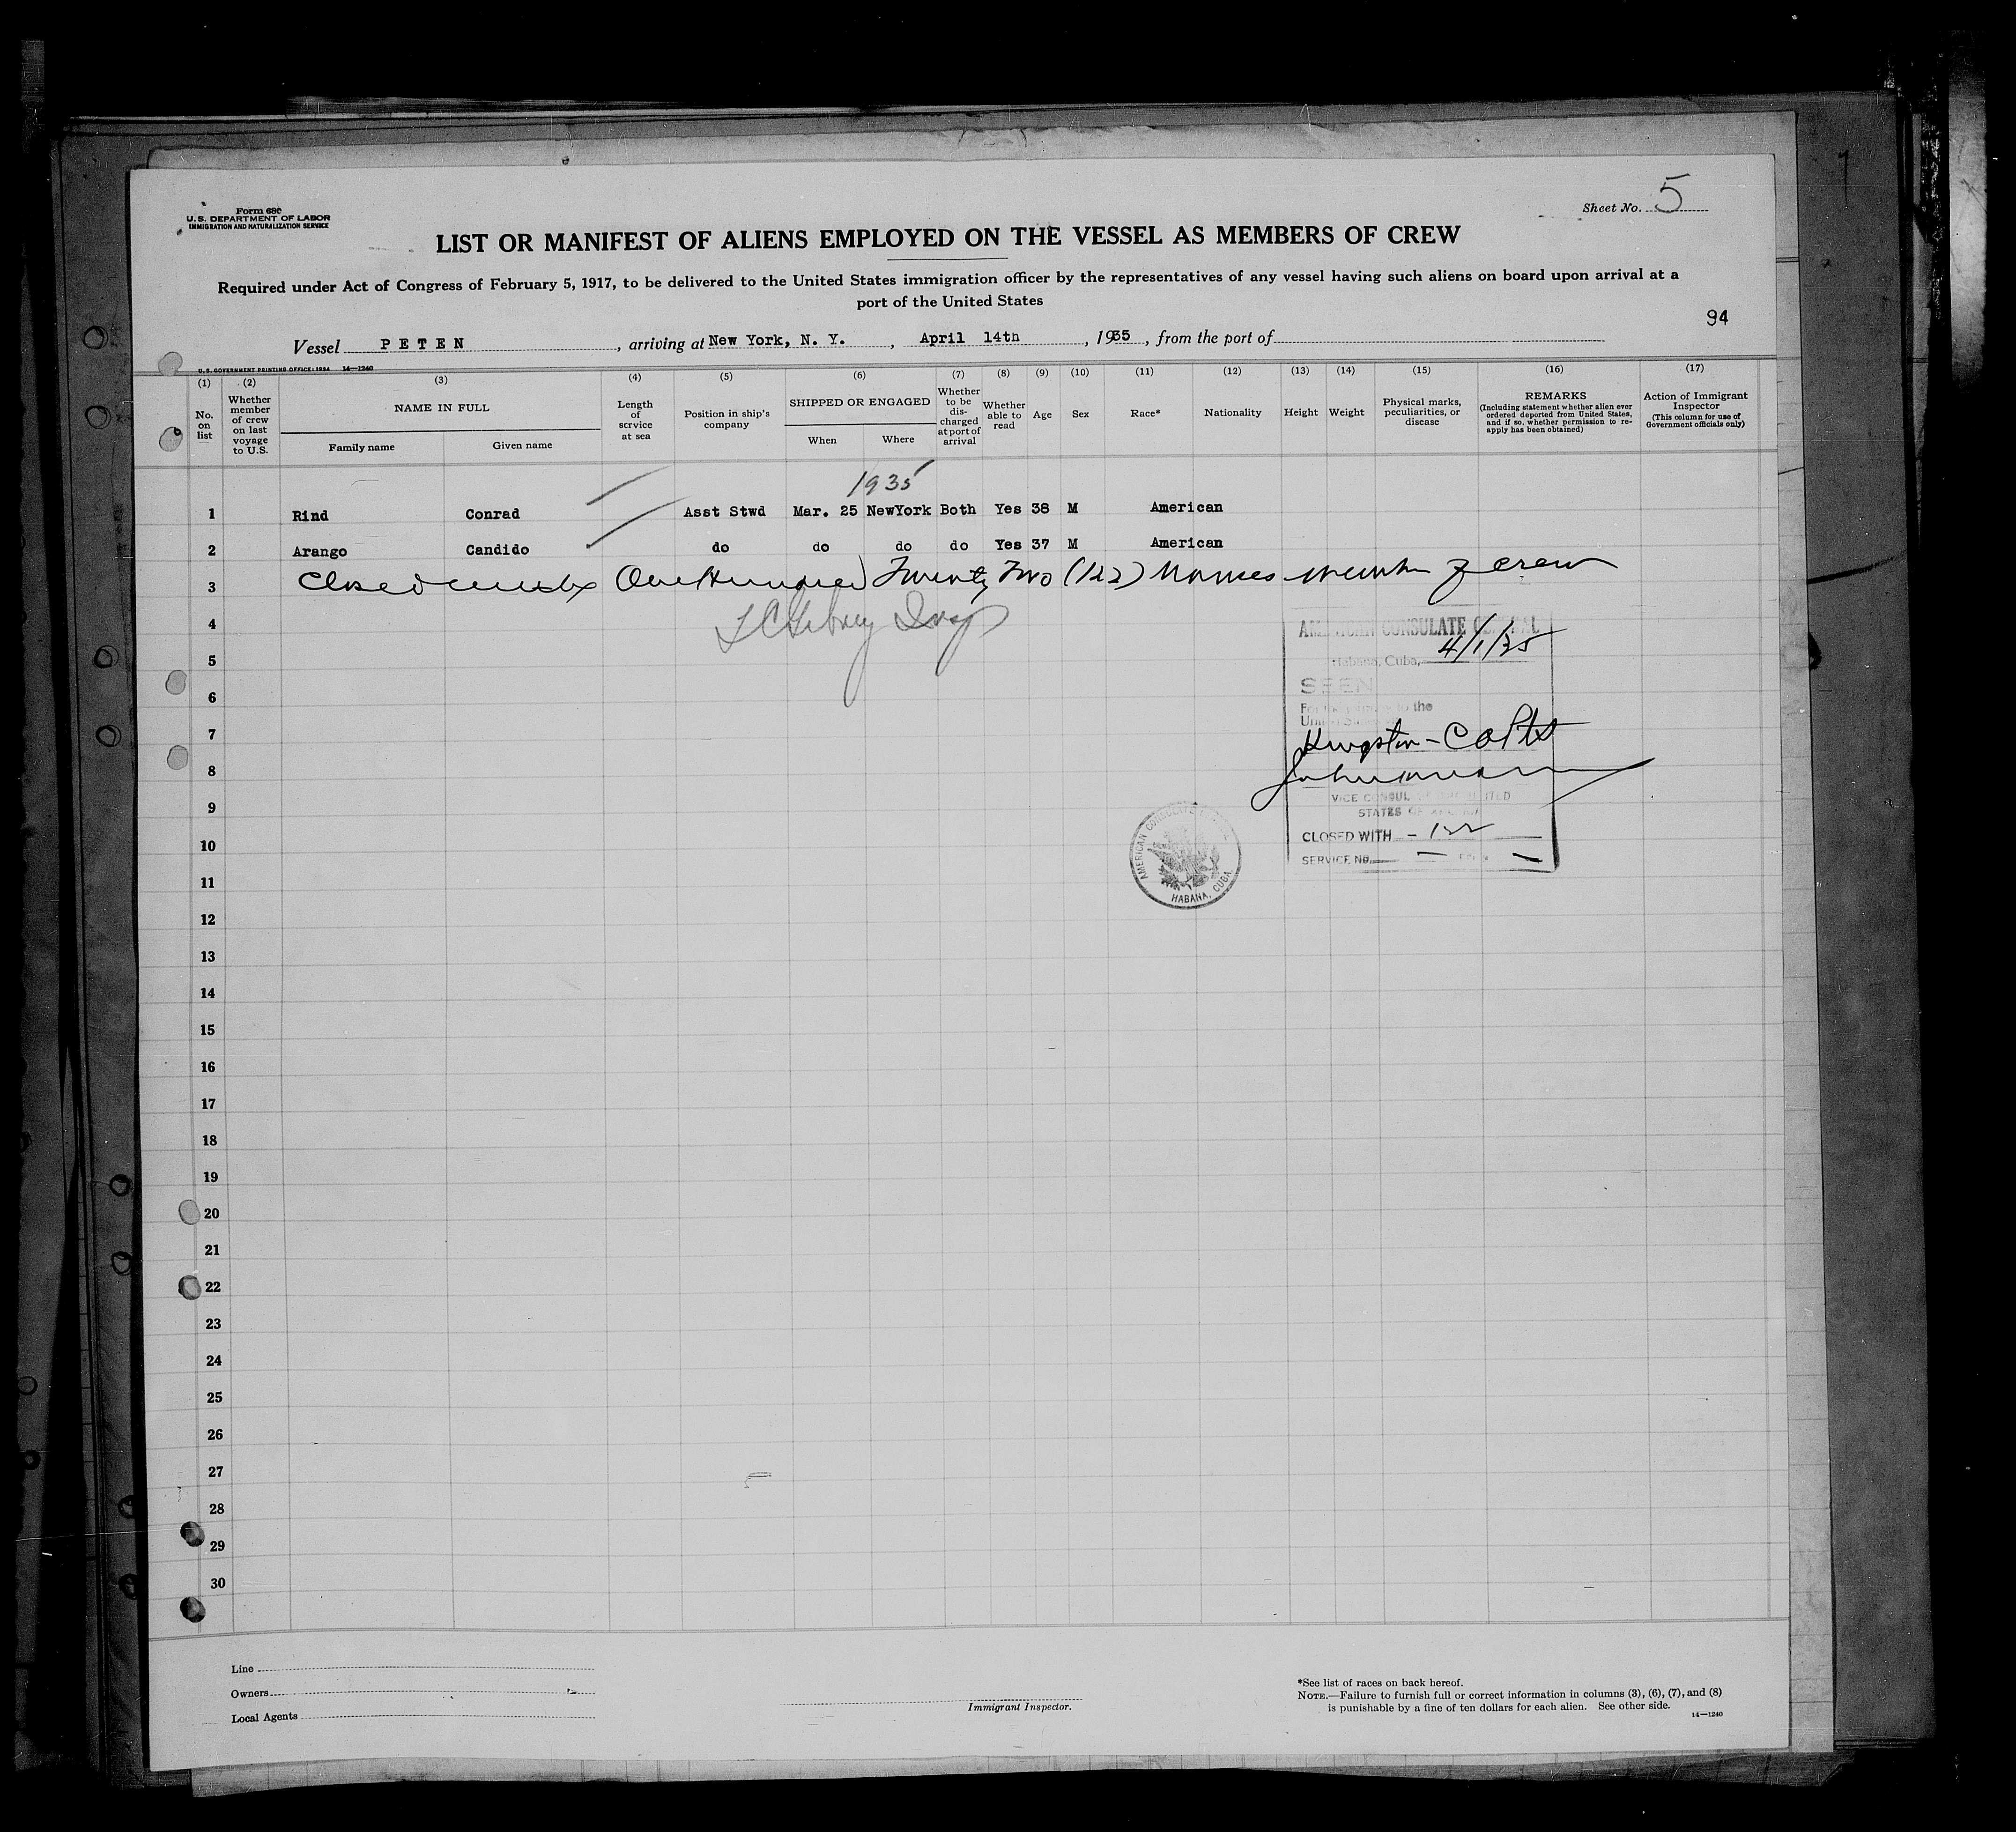 Form 680
U. S. DEPARTMENT OF LABOR
IMMIGRATION AND NATURALIZATION SERVICE
Sheet No. 5
LIST OR MANIFEST OF ALIENS EMPLOYED ON THE VESSEL AS MEMBERS OF CREW
Required under Act of Congress of February 5, 1917, to be delivered to the United States immigration officer by the representatives of any vessel having such aliens on board upon arrival at a
port of the United States
94
Vessel PETEN, arriving at New York, N. Y., April 14th, 1935, from the port of
U. S. GOVERNMENT PRINTING OFFICE: 1934 14—1240
(1) No. on list
(2) Whether member of crew on last voyage to U.S.
(3) NAME IN FULL Family name Given name
(4) Length of service at sea
(5) Position in ship's company
(6) SHIPPED OR ENGAGED When Where
(7) Whether to be discharged at port of arrival
(8) Whether able to read
(9) Age
(10) Sex
(11) Race*
(12) Nationality
(13) Height
(14) Weight
(15) Physical marks, peculiarities, or disease
(16) REMARKS (Including statement whether alien ever ordered deported from United States, and if so, whether permission to re-apply has been obtained)
(17) Action of Immigrant Inspector (This column for use of Government officials only)
1935
1 Rind Conrad Asst Stwd Mar. 25 NewYork Both Yes 38 M American
2 Arango Candido do do do do Yes 37 M American
3 Closed One Hundred Twenty Two (122) Names of crew
4
5
6
7
8
9
10
11
12
13
14
15
16
17
18
19
20
21
22
23
24
25
26
27
28
29
30
AMERICAN CONSULATE GENERAL
Habana, Cuba, 4/1/35
SEEN
For the journey to the
United States
Kingston -
VICE CONSUL OF THE UNITED
STATES OF AMERICA
CLOSED WITH - 122
SERVICE No.
AMERICAN CONSULATE GENERAL
HABANA, CUBA
Line
Owners
Local Agents
Immigrant Inspector.
*See list of races on back hereof.
NOTE.—Failure to furnish full or correct information in columns (3), (6), (7), and (8)
is punishable by a fine of ten dollars for each alien. See other side.
14—1240